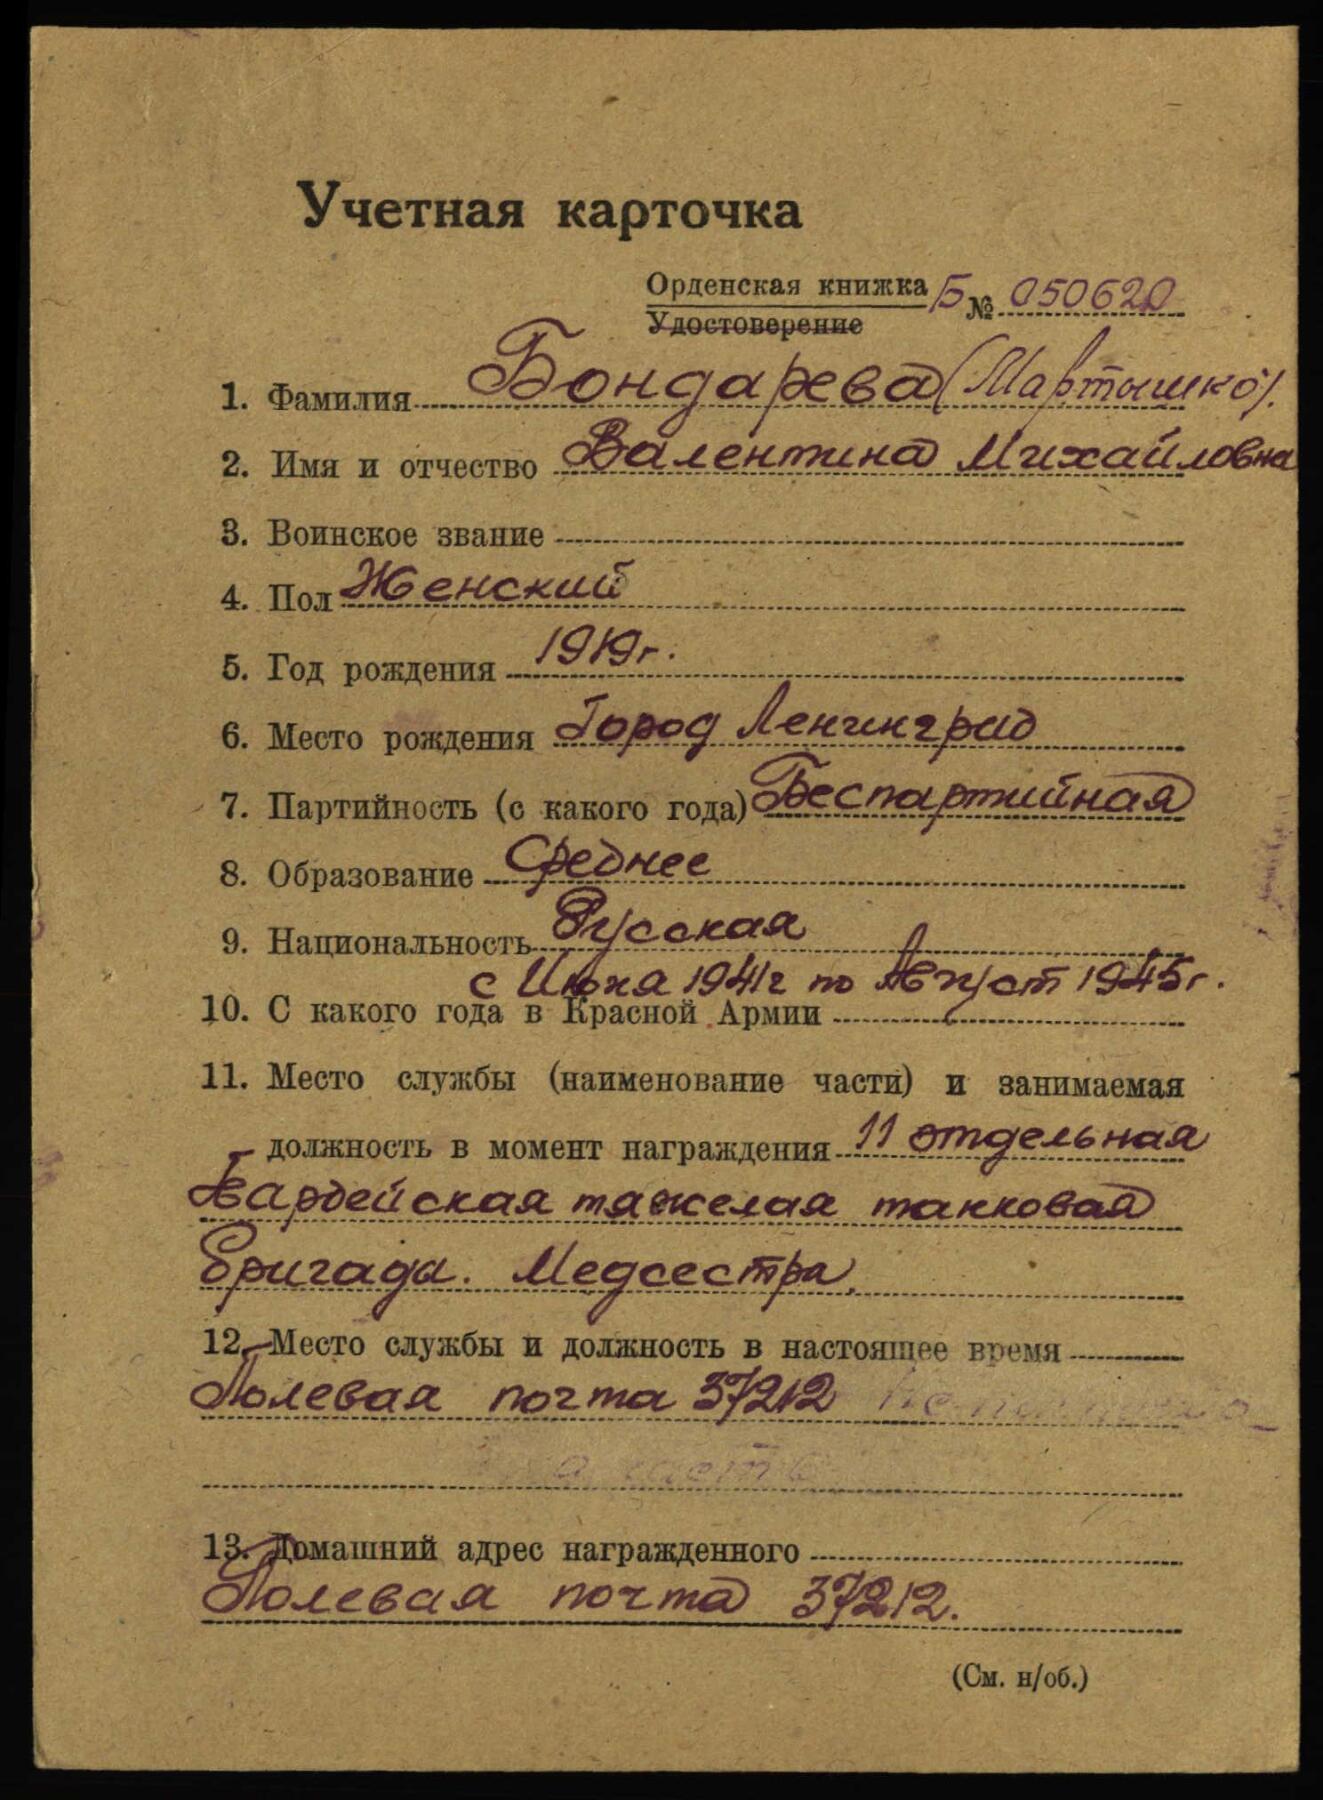 Учетная карточка
Орденская книжка Б № 050620
Удостоверение
1. Фамилия Бондарева (Мартышко).
2. Имя и отчество Валентина Михайловна
3. Воинское звание
4. Пол Женский
5. Год рождения 1919г.
6. Место рождения Город Ленинград
7. Партийность (с какого года) Беспартийная
8. Образование Среднее
9. Национальность Русская
с Июня 1941г по Август 1945г.
10. С какого года в Красной Армии
11. Место службы (наименование части) и занимаемая
должность в момент награждения 11 отдельная
Гвардейская тяжелая танковая
Бригада. Медсестра.
12. Место службы и должность в настоящее время
Полевая почта 37212
13. Домашний адрес награжденного
Полевая почта 37212.
(См. н/об.)